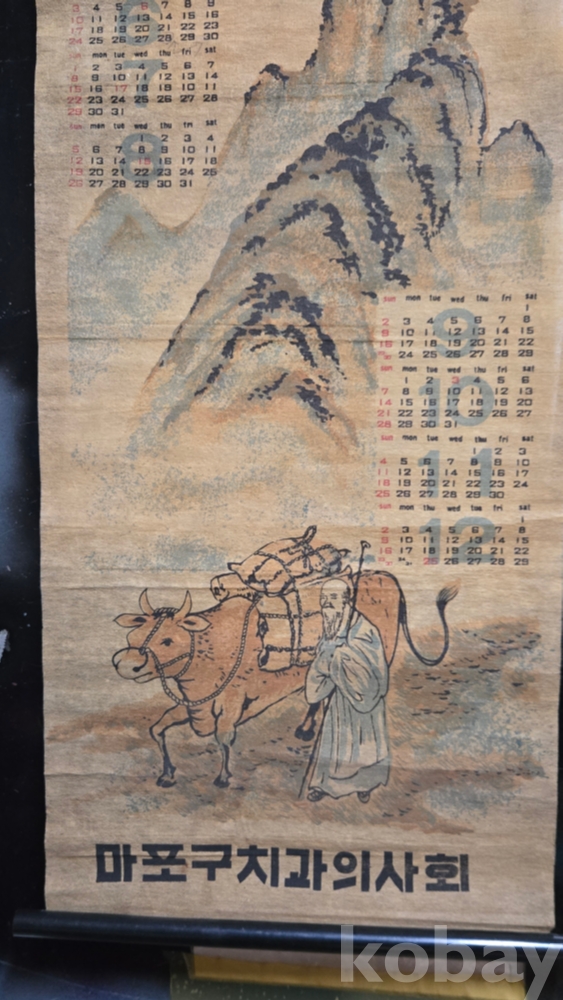 3 4 5 6 7 8 9
10 11 12 13 14 15 16
17 18 19 20 21 22 23
24 25 26 27 28 29 30
7
sun mon tue wed thu fri sat
1 2 3 4 5 6 7
8 9 10 11 12 13 14
15 16 17 18 19 20 21
22 23 24 25 26 27 28
29 30 31
8
sun mon tue wed thu fri sat
1 2 3 4
5 6 7 8 9 10 11
12 13 14 15 16 17 18
19 20 21 22 23 24 25
26 27 28 29 30 31
9
sun mon tue wed thu fri sat
1
2 3 4 5 6 7 8
9 10 11 12 13 14 15
16 17 18 19 20 21 22
24 25 26 27 28 29
10
sun mon tue wed thu fri sat
1 2 3 4 5 6
7 8 9 10 11 12 13
14 15 16 17 18 19 20
21 22 23 24 25 26 27
28 29 30 31
11
sun mon tue wed thu fri sat
1 2 3
4 5 6 7 8 9 10
11 12 13 14 15 16 17
18 19 20 21 22 23 24
25 26 27 28 29 30
12
sun mon tue wed thu fri sat
1
2 3 4 5 6 7 8
9 10 11 12 13 14 15
16 17 18 19 20 21 22
25 26 27 28 29
마포구치과의사회
kobay